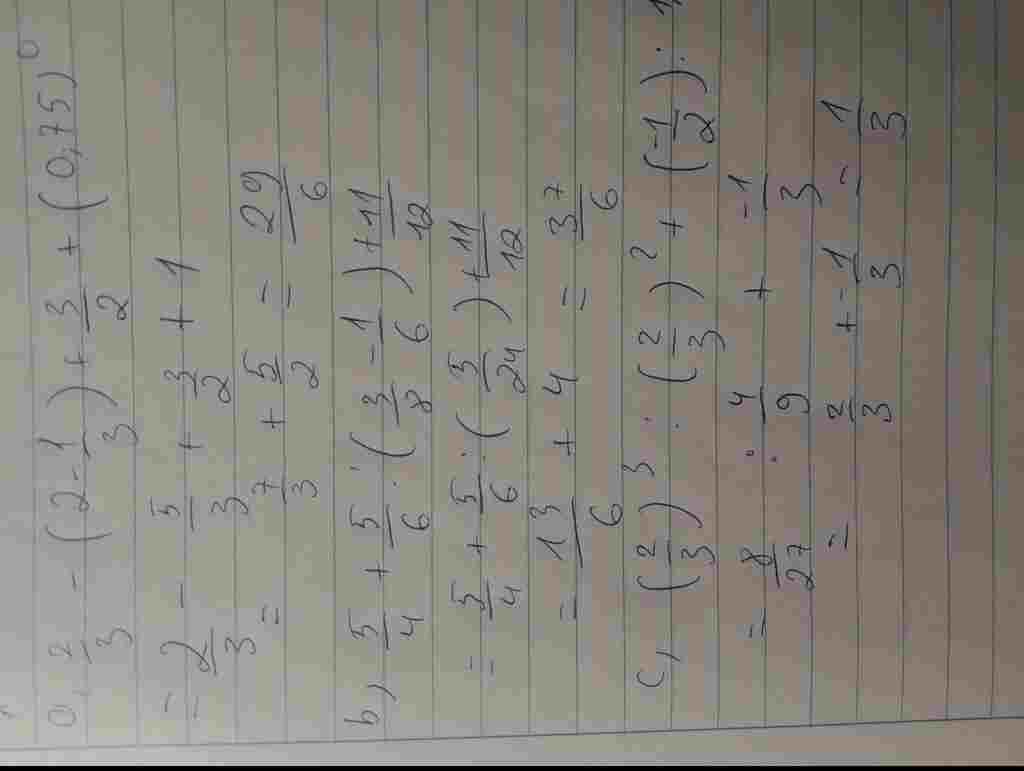 a, 2/3 - (2 - 1/3) + 3/2 + (0,75)^0
= 2/3 - 5/3 + 3/2 + 1
= 7/3 + 5/2 = 29/6
b, 5/4 + 5/6 : (3/8 - 1/6) + 11/12
= 5/4 + 5/6 : (5/24) + 11/12
= 13/6 + 4 = 37/6
c, (2/3)^3 : (2/3)^2 + (-1/2) .
= 8/27 : 4/9 + -1/3
= 2/3 + -1/3 = 1/3